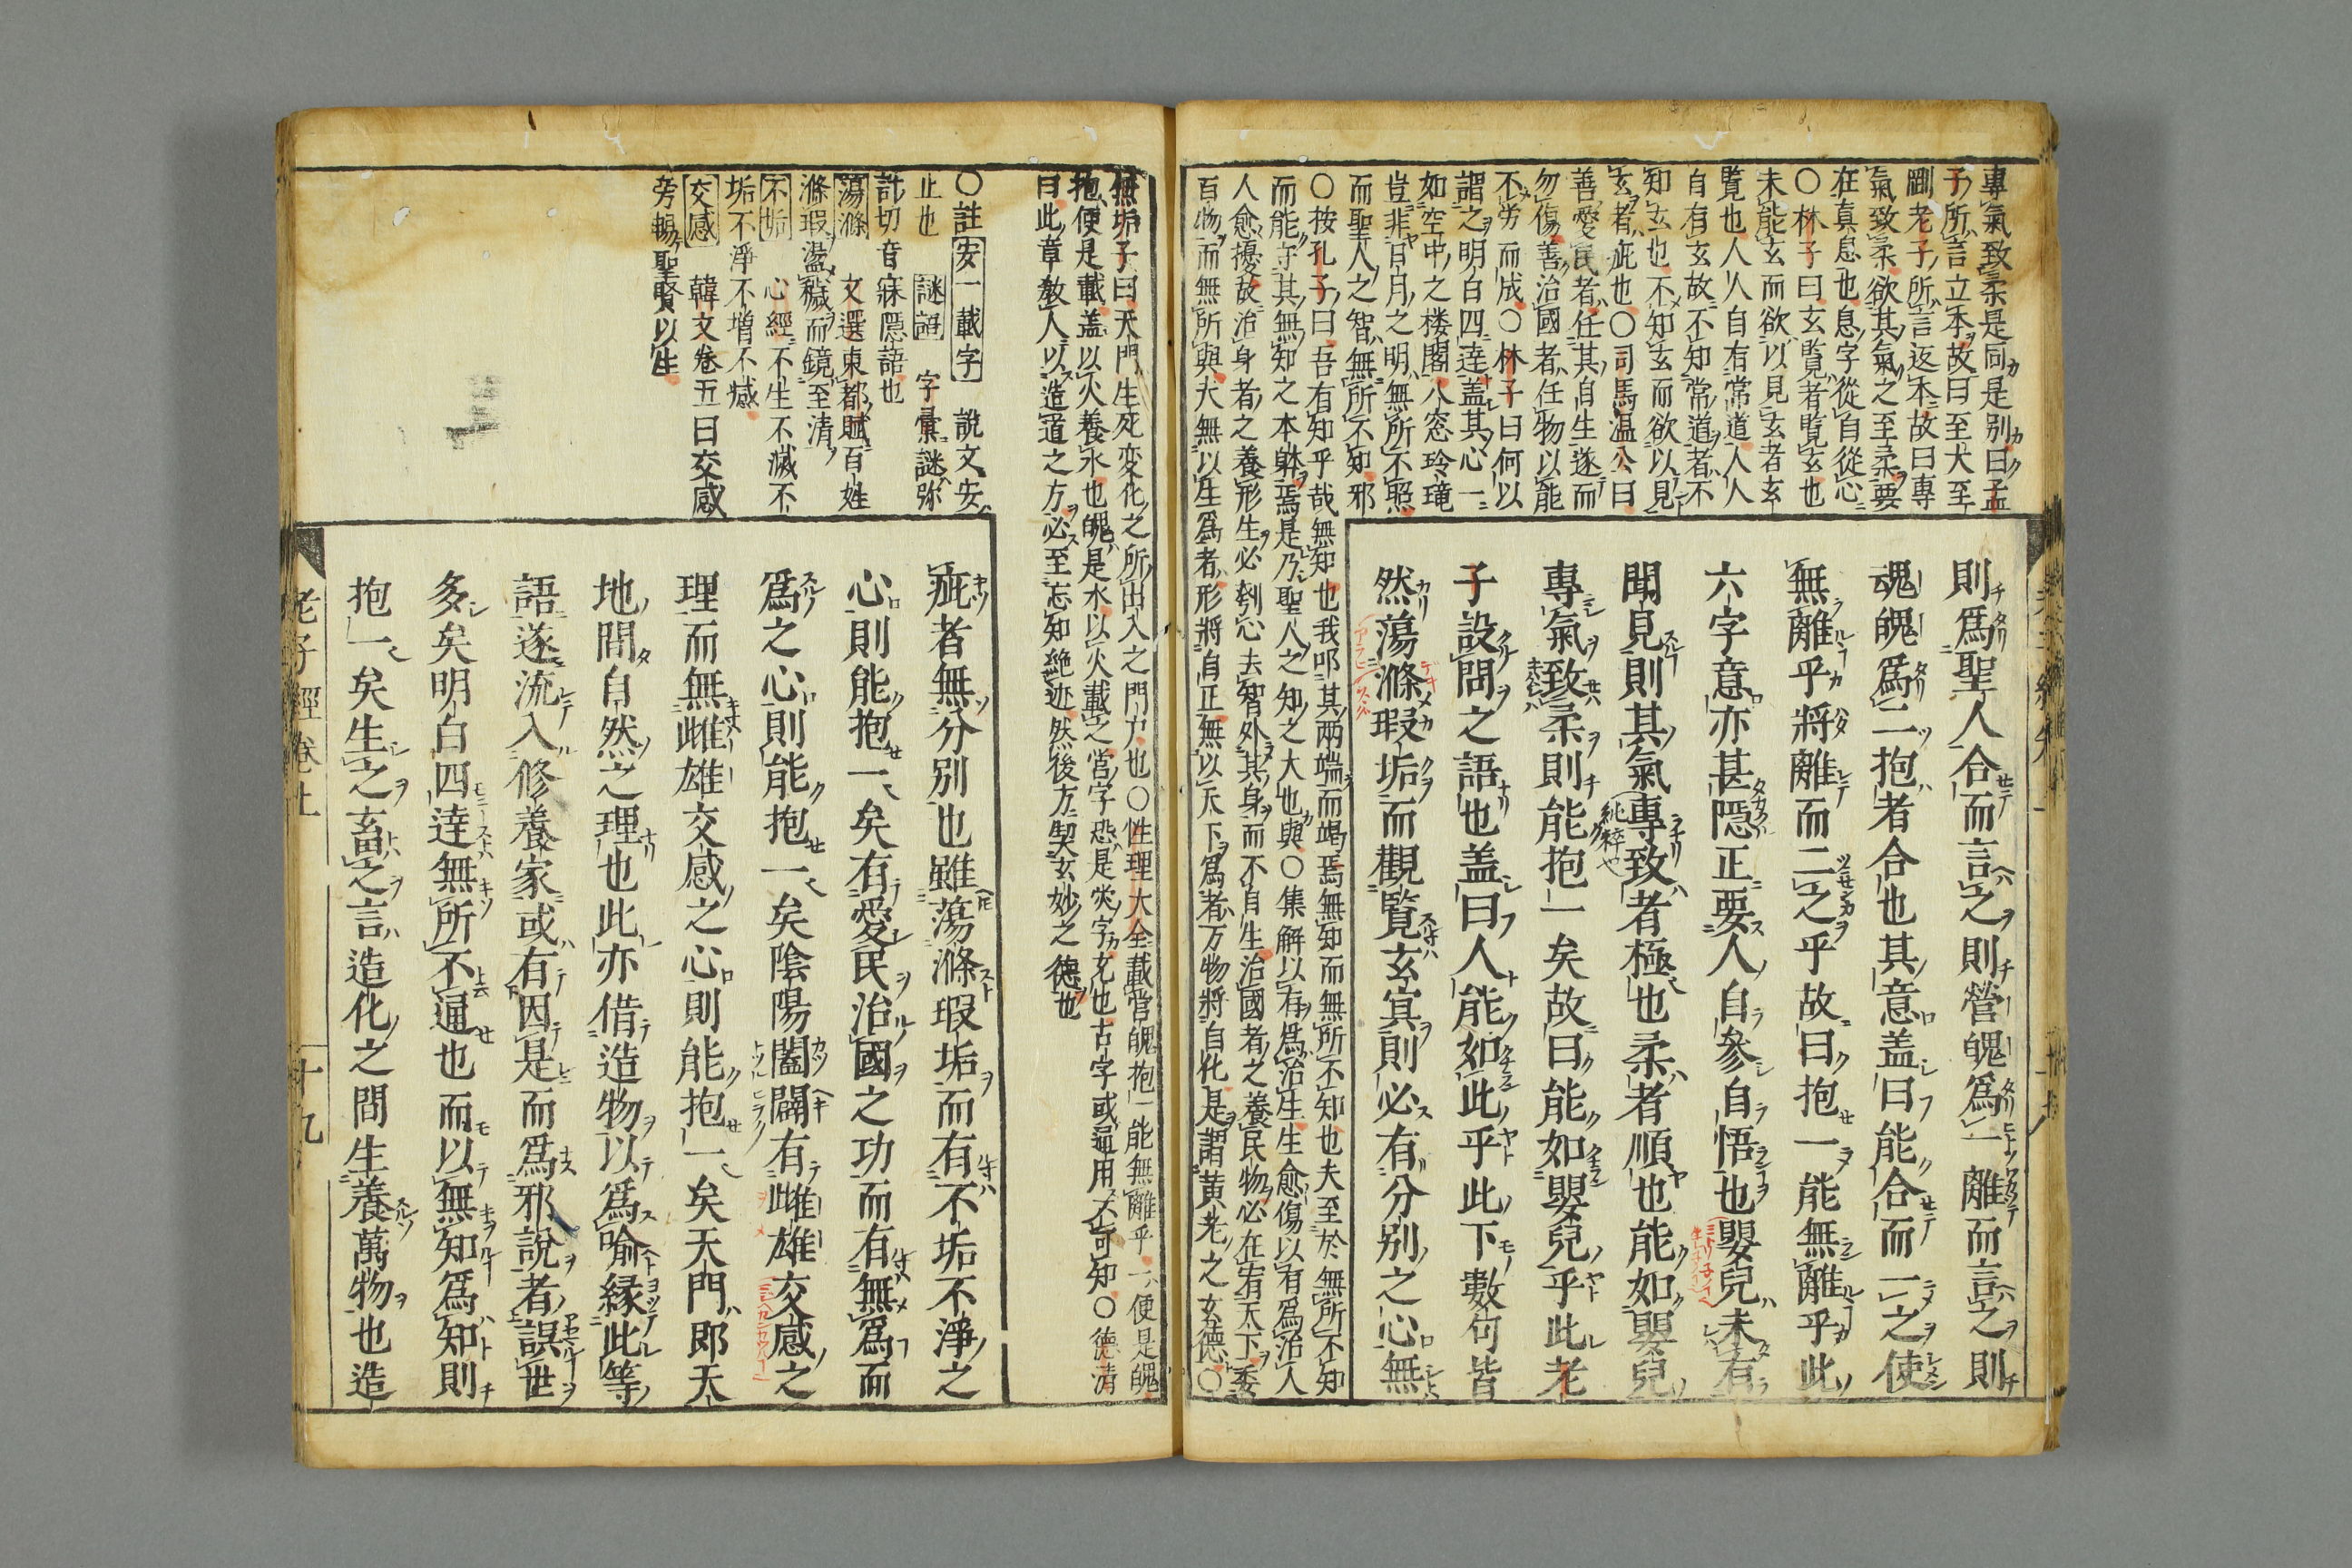 專氣致柔是同是別曰孟
子所言立本故曰至大至
剛老子所言返本故曰專
氣致柔欲其氣之至柔要
在真息也息字從自從心
○林子曰玄覧者覧玄也
未能玄而欲以見玄者玄
覧也人人自有常道人人
自有玄故不知常道者不
知玄也不知玄而欲以見
玄者疵也○司馬温公曰
善愛民者任其自生遂而
勿傷善治國者任物以能
不労而成○林子曰何以
謂之明白四達盖其心一
如空中之楼閣八窓玲瓏
豈非日月之明無所不照
而聖人之智無所不知邪
○按孔子曰吾有知乎哉無知也我叩其兩端而竭焉無知而無所不知也夫至於無所不知
而能守其無知之本躰焉是乃聖人之知之大也與○集解以有爲治生生愈傷以有爲治人
人愈擾故治身者之養形生必刳心去智外其身而不自生治國者之養民物必在宥天下委
百物而無所與夫無以生爲者形將自正無以天下爲者万物將自化是謂黄老之玄德○
則爲聖人合而言之則營魄爲一離而言之則
魂魄爲二抱者合也其意盖曰能合而一之使
無離乎將離而二之乎故曰抱一能無離乎此
六字意亦甚隱正要人自參自悟也嬰兒未有
聞見則其氣專致者極也柔者順也能如嬰兒
專氣致柔則能抱一矣故曰能如嬰兒乎此老
子設問之語也盖曰人能如此乎此下數句皆
然蕩滌瑕垢而觀覧玄冥則必有分別之心無
無垢子曰天門生死変化之所出入之門户也○性理大全載營魄抱一能無離乎一便是魄
抱便是載盖以火養水也魄是水以火載之營字恐是熒字光也古字或通用不可知○德清
曰此章教人以造道之方必至忘知絶迹然後方契玄妙之德也
○註安一載字 說文安
止也 謎語 字彙謎弥
計切音寐隱語也
蕩滌 文選東都賦百姓
滌瑕盪穢而鏡至清
不垢 心經不生不滅不
垢不淨不增不減
交感 韓文巻五曰交感
旁暢聖賢以生
疵者無分別也雖蕩滌瑕垢而有不垢不淨之
心則能抱一矣有愛民治國之功而有無爲而
爲之心則能抱一矣陰陽闔闢有雌雄交感之
理而無雌雄交感之心則能抱一矣天門即天
地間自然之理也此亦借造物以爲喻縁此等
語遂流入修養家或有因是而爲邪說者誤世
多矣明白四達無所不通也而以無知爲知則
抱一矣生之畜之言造化之間生養萬物也造
老子經卷上
十九